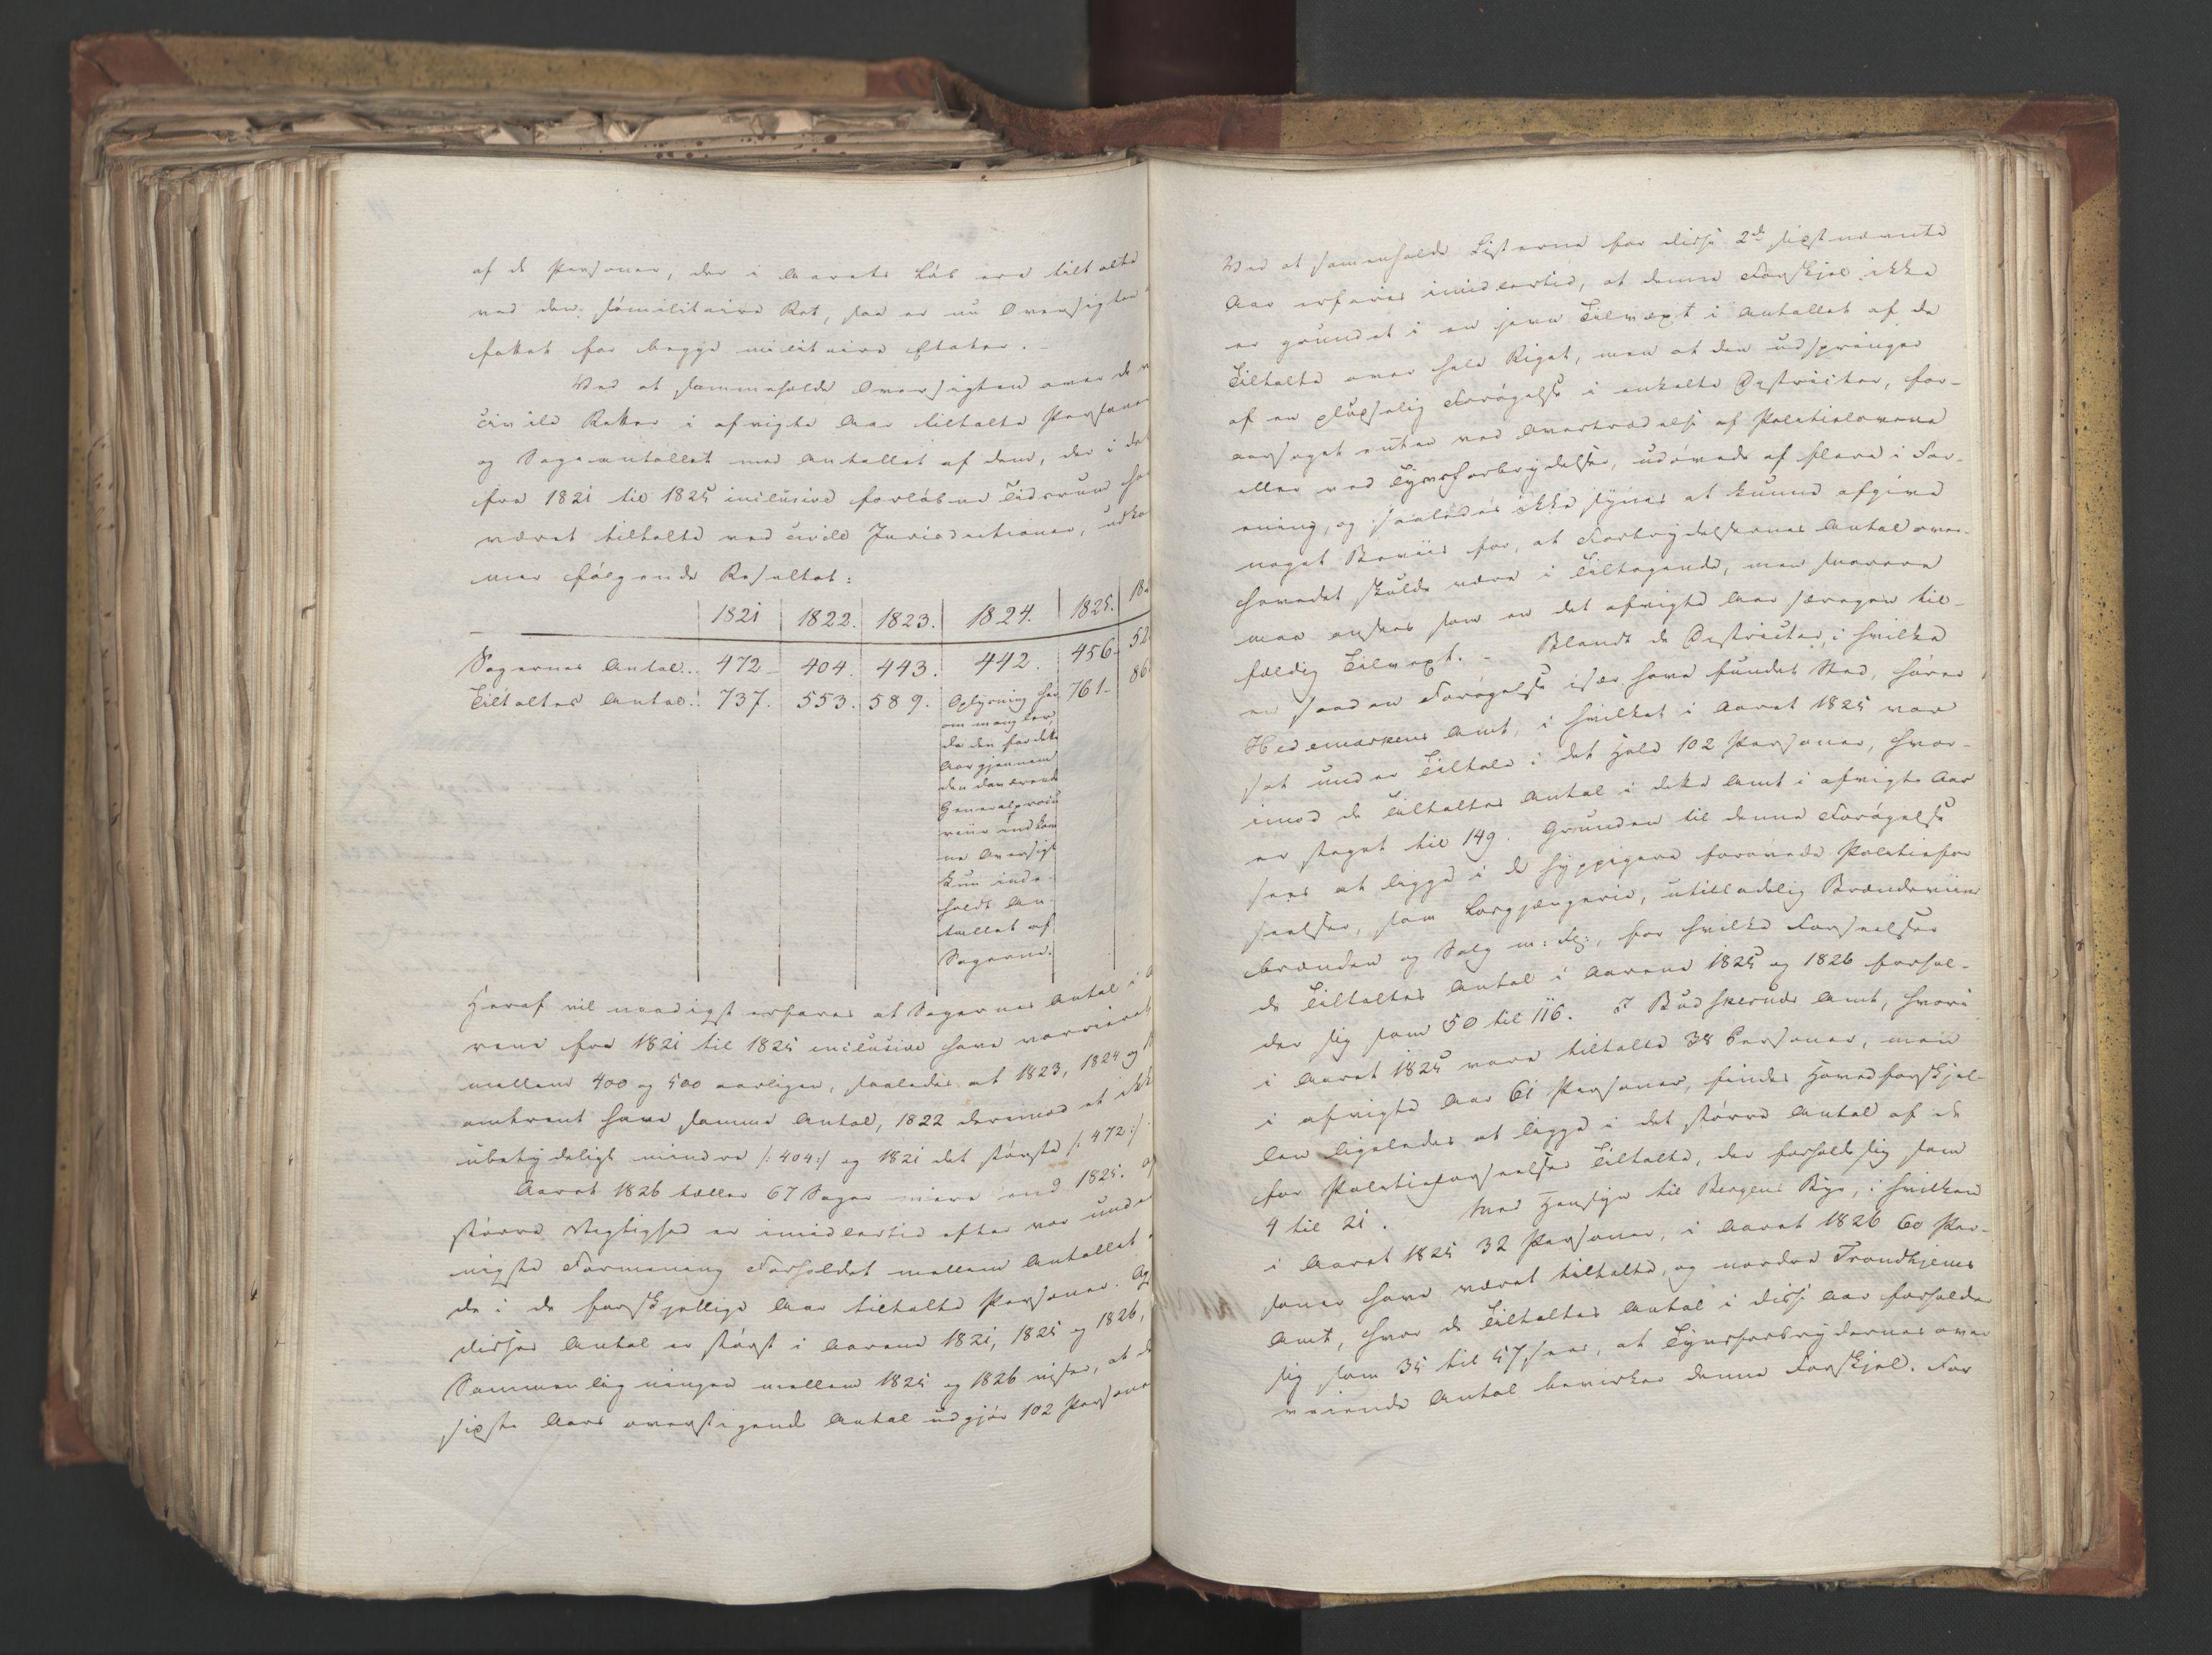 af de Personer, der i Aarets Løb ere tiltalte
ved den sømilitaire Ret, saa er nu Oversigten
fattet for begge militaire Etater. –
Ved at sammenholde Oversigten over de v
civile Retter i afvigte Aar tiltalte Personer
og Sagantallet med Antallet af dem, der i det
fra 1821 til 1825 inclusive forløbne Tidsrum ha
været tiltalte ved civile Jurisdictioner, udko
mer følgende Resultat:
1821 1822. 1823. 1824. 1825. 182
Sagernes Antal.. 472 – 404. 443. 442. 456 – 52
Tiltaltes Antal.. 737. 553. 589. Oplysning her 761 – 86
om mangler,
da den for dette
Aar gjennem
den daværende
Generalprocu
reur indkom
ne Oversigt
kun inde-
holdt An-
tallet af
Sagerne.
Heraf vil naadigst erfares at Sagernes Antal i A
rene fra 1821 til 1825 inclusive have varrieret
mellem 400 og 500 aarligen, saaledes at 1823, 1824 og 1
omtrent have samme Antal, 1822 derimod et ikke
ubetydeligt mindre /: 404 :/ og 1821 det største /: 472 :/.
Aaret 1826 tæller 67 Sager mere end 1825. Af
større Vigtighed er imidlertid efter vor under
nigste Formening Forholdet mellem Antallet a
de i de forskjellige Aar tiltalte Personer. Og
disses Antal er størst i Aarene 1821, 1825 og 1826,
Sammenligningen mellem 1825 og 1826 viser, at d
sidste Aars overstigende Antal udgjør 102 Persone
Ved at sammenholde Listerne for disse 2de sidstnævnte
Aar erfares imidlertid, at denne Forskjel ikke
er grundet i en jevn Tilvext i Antallet af de
Tiltalte over hele Riget, men at den udspringer
af en pludselig Forøgelse i enkelte Districter, for-
aarsaget enten ved Overtrædelse af Politielovene
eller ved Tyvsforbrydelser, udøvede af flere i For-
ening, og saaledes ikke synes at kunne afgive
noget Beviis for, at Forbrydelsernes Antal over-
hovedet skulde være i Tiltagende, men snarere
maa ansees som en det afvigte Aar særegen til-
fældig Tilvext. – Blandt de Districter, i hvilke
en saadan Forøgelse især have fundet Sted, hører
Hedemarkens Amt, i hvilket i Aaret 1825 var
sat under Tiltale i det Hele 102 Personer, hvor-
imod de Tiltaltes Antal i dette Amt i afvigte Aar
er steget til 149. Grunden til denne Forøgelse
sees at ligge i de hyppigere forøvede Politiefor
seelser, som Løsgjængerie, utilladelig Brændeviins
brænden og Salg m: Fl:, for hvilke Forseelser
de Tiltaltes Antal i Aarene 1825 og 1826 forhol-
der sig som 50 til 116. I Budskeruds Amt, hvori
i Aaret 1825 vare tiltalte 38 Personer, men
i afvigte Aar 61 Personer, findes Hovedforskjel-
len ligeledes at ligge i det større Antal af de
for Politieforseelser Tiltalte, der forholde sig som
4 til 21. Med Hensyn til Bergens Bye, i hvilken
i Aaret 1825 32 Personer, i Aaret 1826 60 Per-
soner have været tiltalte, og nordre Trondhjems
Amt, hvor de Tiltaltes Antal i disse Aar forholder
sig som 35 til 57, sees, at Tyvsforbrydernes over
veiende Antal bevirker denne Forskjel. For